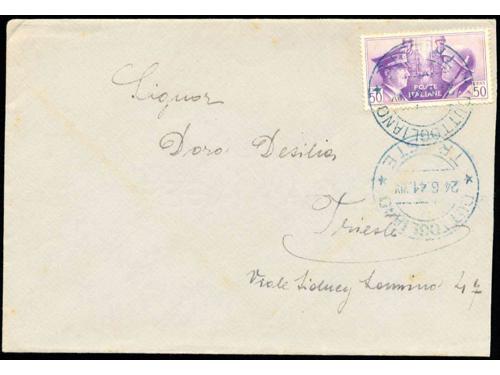 50 POSTE ITALIANE 50
DUTTOGLIANO
TRIESTE
Signor
Doro Desilia
24.6.41.XIX
DUTTOGLIANO
Trieste
Viale Sidney Sonnino 47